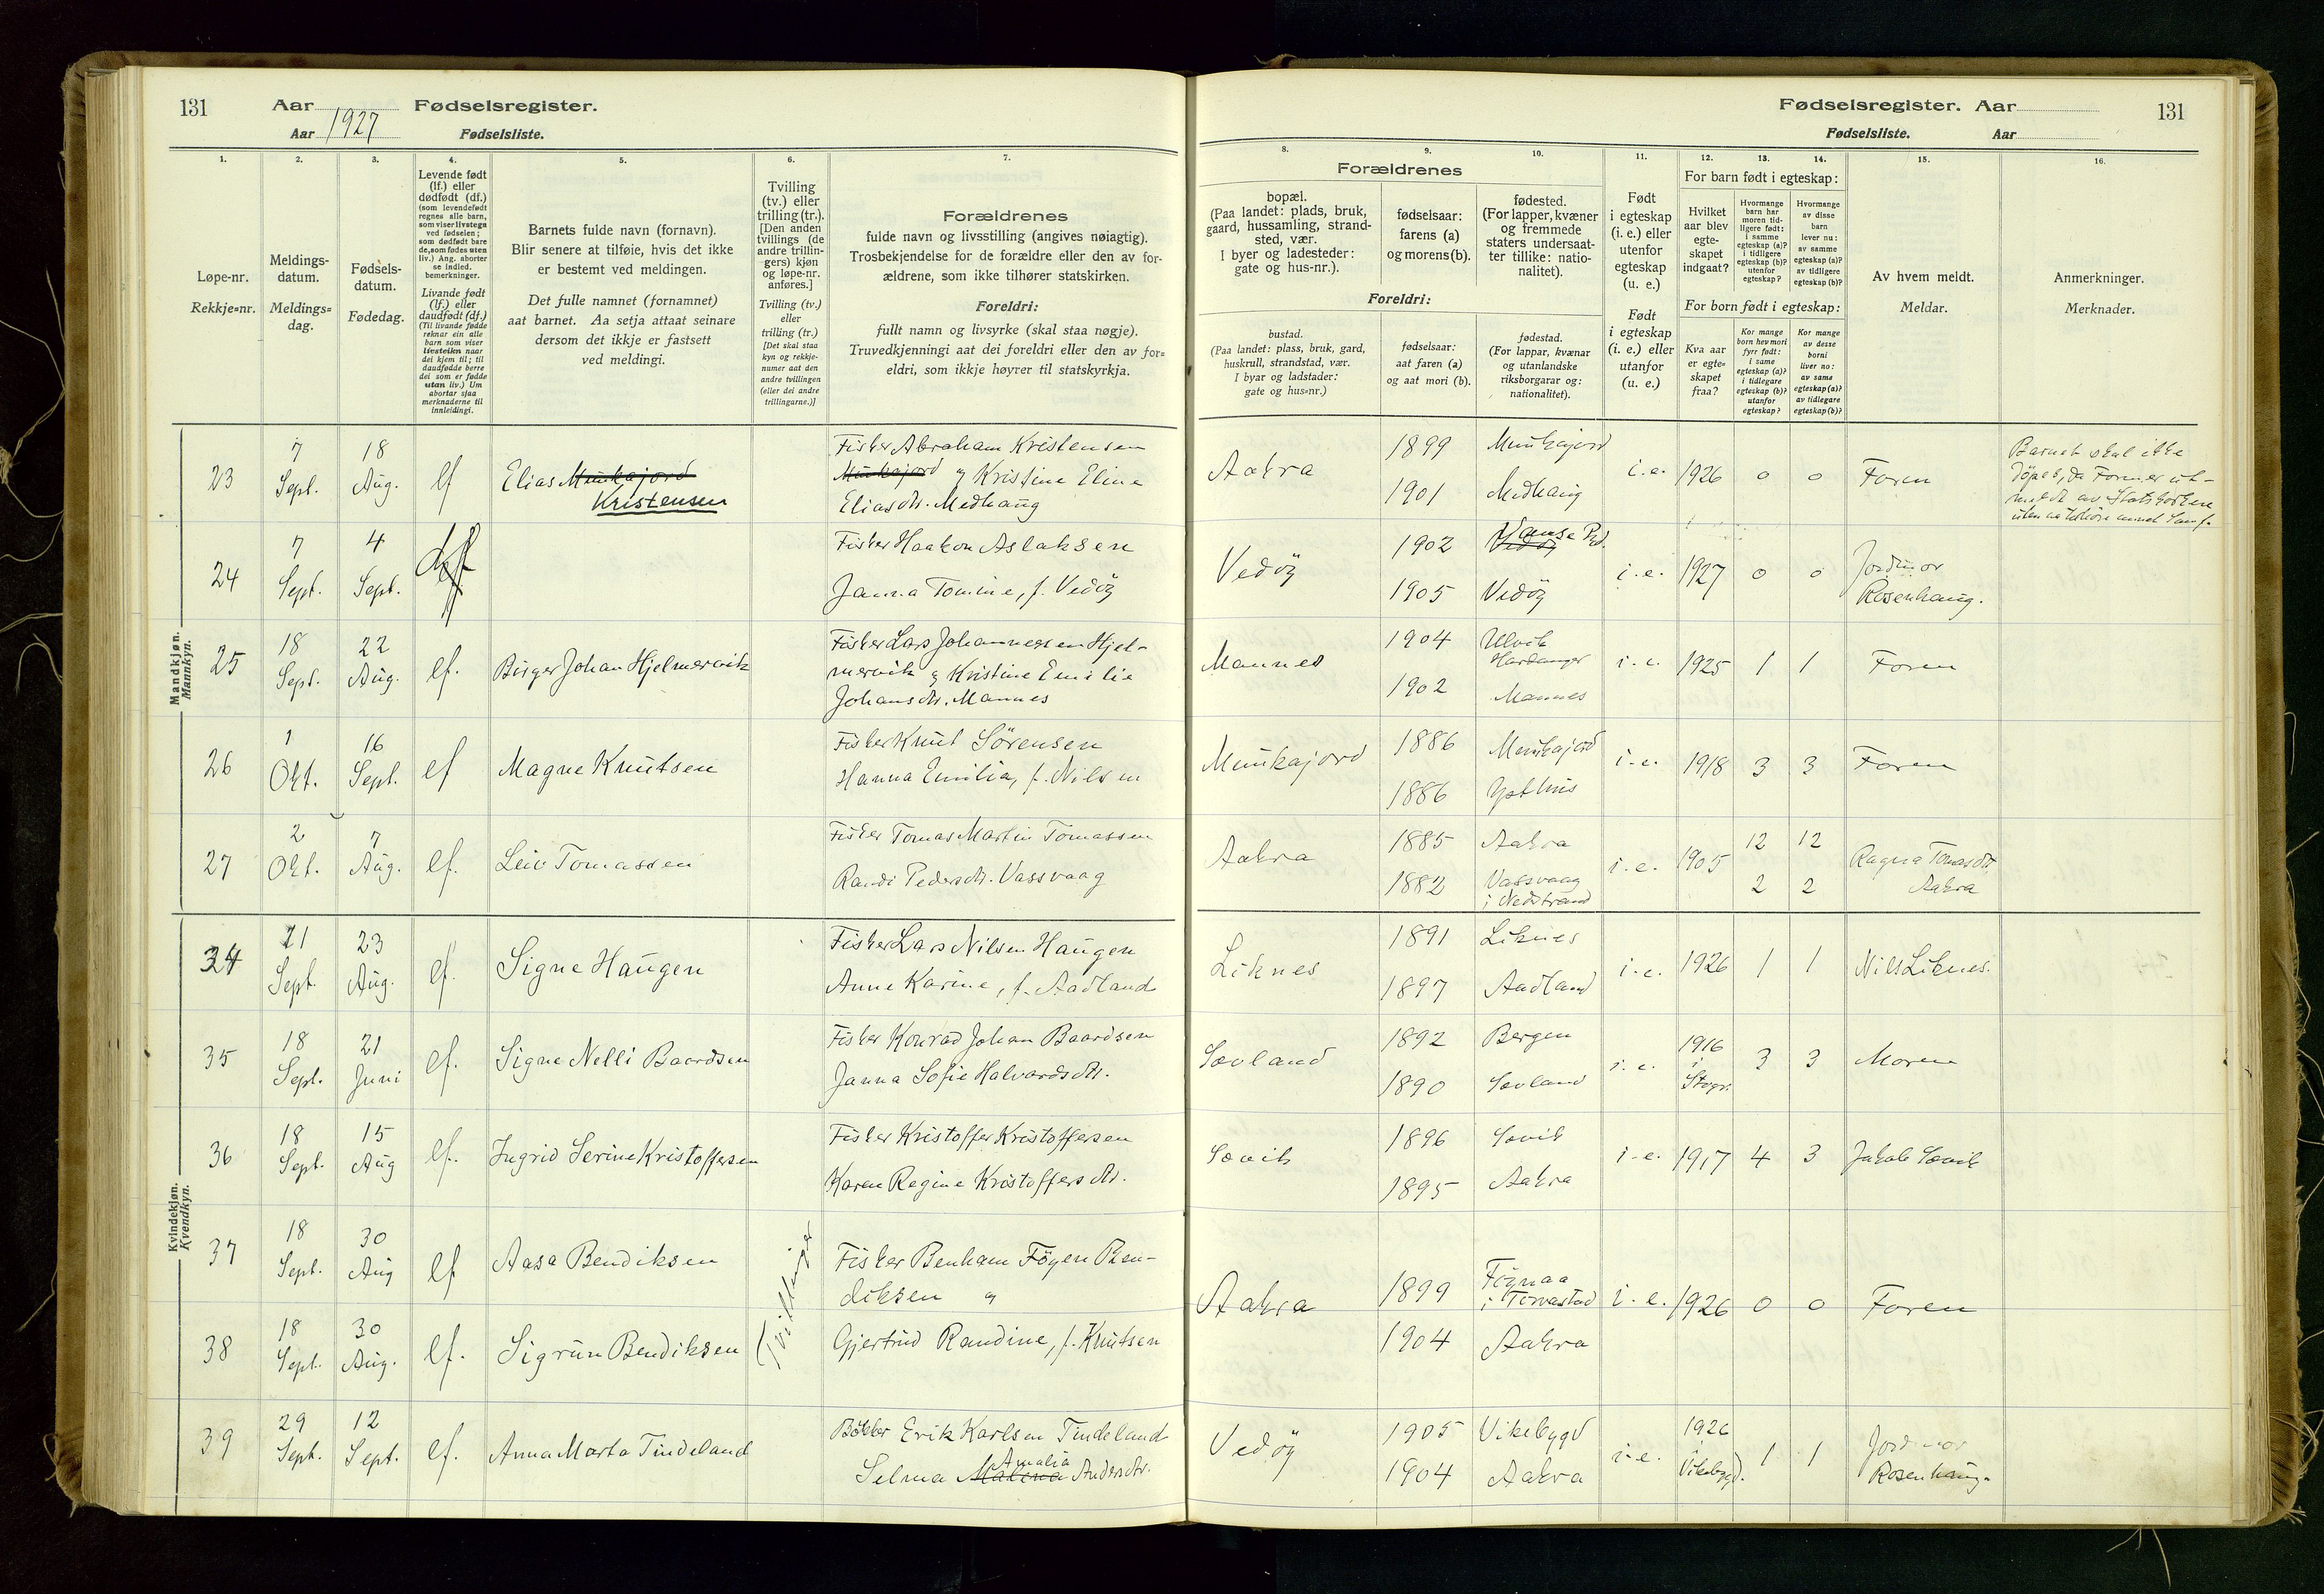 131 Aar Fødselsregister.
Aar 1927 Fødselsliste.
Fødselsregister. Aar 131
Fødselsliste. Aar
1. 2. 3. 4. 5. 6. 7.
Løpe-nr.
Rekkje=nr.
Meldings-
datum.
Meldings=
dag.
Fødsels-
datum.
Fødedag.
Levende født
(lf.) eller
dødfødt (df.)
(som levendefødt
regnes alle barn,
som viser livstegn
ved fødselen;
som dødfødt bare
de, som fødes uten
liv.) Ang. aborter
se indled.
bemerkninger.
Livande født
(lf.) eller
daudfødt (df.)
(Til livande fødde
reknar ein alle
barn som viser
livsteikn naar
dei kjem til; til
daudfødde berre
dei som er fødde
utan liv.) Um
abortar sjaa
merknaderne til
innleidingi.
Barnets fulde navn (fornavn).
Blir senere at tilføie, hvis det ikke
er bestemt ved meldingen.
Det fulle namnet (fornamnet)
aat barnet. Aa setja attaat seinare
dersom det ikkje er fastsett
ved meldingi.
Tvilling
(tv.) eller
trilling (tr.).
[Den anden
tvillings (de
andre trillin-
gers) kjøn
og løpe-nr.
anføres.]
Tvilling (tv.)
eller
trilling (tr.)
[Det skal staa
kyn og rekkje-
numer aat den
andre tvillingen
(eller dei andre
trillingarne.)]
Forældrenes
fulde navn og livsstilling (angives nøiagtig).
Trosbekjendelse for de forældre eller den av for-
ældrene, som ikke tilhører statskirken.
Foreldri:
fullt namn og livsyrke (skal staa nøgje).
Truvedkjenningi aat dei foreldri eller den av for=
eldri, som ikkje høyrer til statskyrkja.
8. 9. 10. 11. 12. 13. 14. 15. 16.
Forældrenes
bopæl.
(Paa landet: plads, bruk,
gaard, hussamling, strand-
sted, vær.
I byer og ladesteder:
gate og hus-nr.).
fødselsaar:
farens (a)
og morens (b).
fødested.
(For lapper, kvæner
og fremmede
staters undersaat-
ter tillike: natio-
nalitet).
Foreldri:
bustad.
(Paa landet: plass, bruk, gard,
huskrull, strandstad, vær.
I byar og ladstader:
gate og hus=nr.)
fødselsaar:
aat faren (a)
og aat mori (b).
fødestad.
(For lappar, kvænar
og utanlandske
riksborgarar og:
nationalitet).
Født
i egteskap
(i. e.) eller
utenfor
egteskap
(u. e.)
Født
i egteskap
(i. e.) eller
utanfor
(u. e.)
For barn født i egteskap:
Hvilket
aar blev
egte-
skapet
indgaat?
Hvormange
barn har
moren tid-
ligere født:
i samme
egteskap (a)?
i tidligere
egteskap (b)?
utenfor
egteskap?
Hvormange
av disse
barn
lever nu:
av samme
egteskap (a)?
av tidligere
egteskap (b)?
For born født i egteskap:
Kva aar
er egte=
skapet
fraa?
Kor mange
born hev mori
fyrr født:
i same
egteskap (a)?
i tidlegare
egteskap (b)?
utanfor
egteskap?
Kor mange
av desse
borni
liver no:
av same
egteskap (a)?
av tidlegare
egteskap (b)?
Av hvem meldt.
Meldar.
Anmerkninger.
Merknader.
Mandkjøn.
Mannkyn.
23 7 Sept. 18 Aug. lf Elias Munkajord
Kristensen
Fisker Abraham Kristensen
Munkajord og Kristine Eline
Eliasdtr. Medhaug
Aakra 1899 Munkajord
1901 Medhaug
i.e. 1926 0 0 Faren
Barnet skal ikke
döpes, da Faren er ut-
meldt av Statskirken
24 7 Sept. 4 Sept.
Fisker Haakon Aslaksen
Janna Tomine, f. Vedöy
Vedöy 1902 Vedöy
1905 Vedöy
i.e. 1927 0 0 Jordmor
Rosenhaug.
25 18 Sept. 22 Aug. lf. Birger Johan Hjelmervik
Fisker Lars Johannessen Hjel-
mervik og Kristine Emilie
Johansdtr. Mannes
Mannes 1904 Ulvik
Hardanger
1902 Mannes
i.e. 1925 1 1 Faren
26 1 Okt. 16 Sept. lf Magne Knutsen
Fisker Knut Sörensen
Hanna Emilia, f. Nilsen
Munkajord 1886 Munkajord
1886
i.e. 1918 3 3 Faren
27 2 Okt. 7 Aug. lf. Leiv Tomassen
Fisker Tomas Martin Tomassen
Randi Pedersdtr. Vassvaag
Aakra 1885 Aakra
1882 Vassvaag
i Nedstrand
i.e. 1905 12 12
2 2
Ragna Tomasdtr.
Aakra
Kvindekjøn.
Kvendkyn.
34 21 Sept. 23 Aug. lf. Signe Haugen
Fisker Lars Nilsen Haugen
Anne Karine, f. Aadland
Liknes 1891 Liknes
1897 Aadland
i.e. 1926 1 1 Nils Liknes.
35 18 Sept. 21 Juni lf. Signe Nelli Baardsen
Fisker Konrad Johan Baardsen
Janna Sofie Halvardsdtr.
Sævland 1892 Bergen
1890 Sævland
i.e. 1916
i
3 3 Moren
36 18 Sept. 15 Aug lf. Ingrid Serine Kristoffersen
Fisker Kristoffer Kristoffersen
Karen Regine Kristoffersdtr.
Sævik 1896 Sævik
1895 Aakra
i.e. 1917 4 3 Jakob Sævik
37 18 Sept. 30 Aug lf Aasa Bendiksen
Tvillinger
Fisker Benham Föyen Ben-
diksen og
38 18 Sept. 30 Aug. lf. Sigrun Bendiksen
Gjertrud Randine, f. Knutsen
Aakra 1899
i Torvastad
1904 Aakra
i.e. 1926 0 0 Faren
39 29 Sept. 12 Sept. lf. Anna Marta Tindeland
Bökker Erik Karlsen Tindeland
Amalia
Selma Malina Andersdtr.
Vedöy 1905 Vikebygd
1904 Aakra
i.e. 1926
i
Vikebygd. 1 1 Jordmor
Rosenhaug.